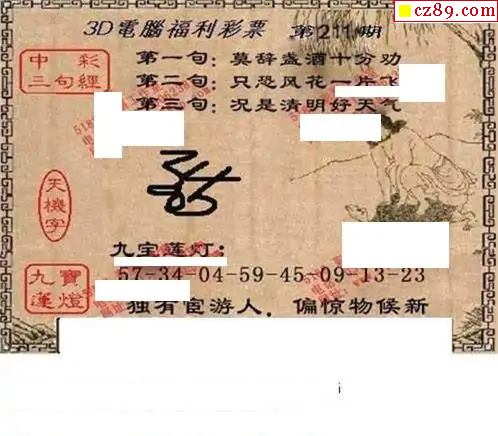 cz89.com
3D電腦福利彩票 第211期
中彩
三句經
第一句：莫辞盏酒十分劝
第二句：只恐风花一片飞
第三句：况是清明好天气
天機字
九宝莲灯：
九寶
蓮燈
57-34-04-59-45-09-13-23
独有宦游人，偏惊物候新
i